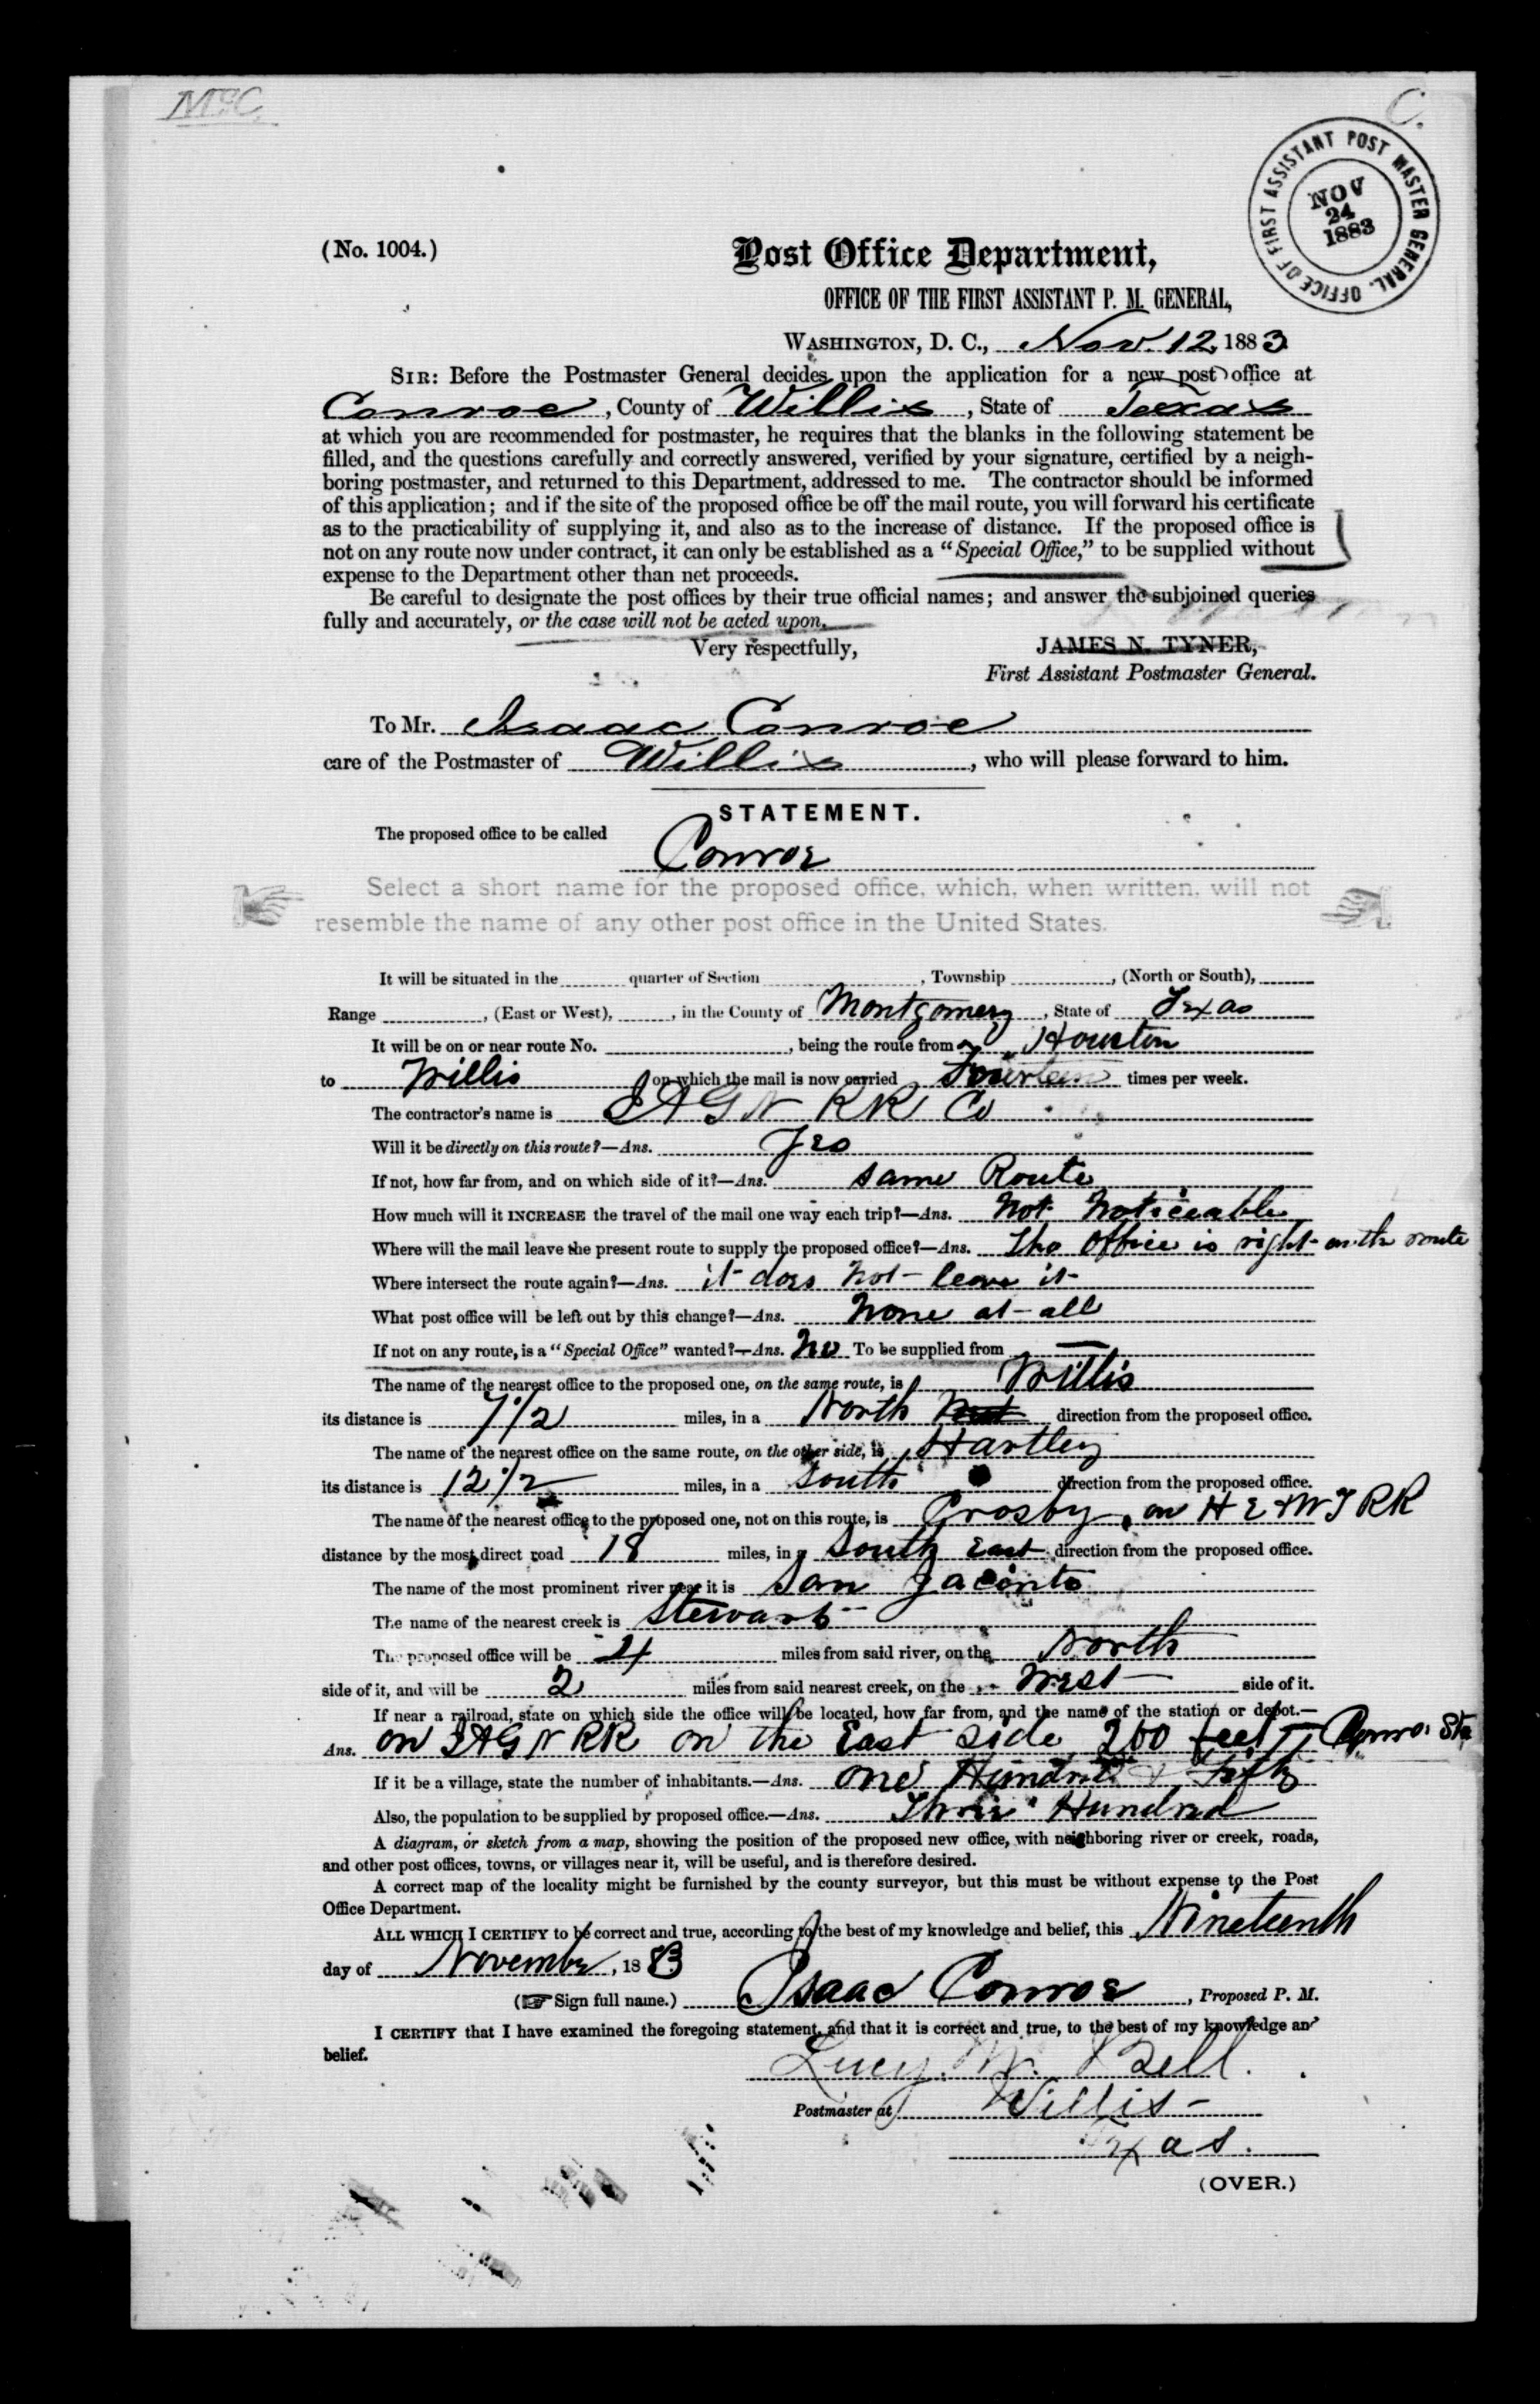 McC.
C.
OFFICE OF FIRST ASSISTANT POST MASTER GENERAL.
NOV
24
1883
(No. 1004.)
Post Office Department,
OFFICE OF THE FIRST ASSISTANT P. M. GENERAL,
WASHINGTON, D. C., Nov. 12, 1883.
SIR: Before the Postmaster General decides upon the application for a new post office at
Conroe, County of Willis, State of Texas
at which you are recommended for postmaster, he requires that the blanks in the following statement be
filled, and the questions carefully and correctly answered, verified by your signature, certified by a neigh-
boring postmaster, and returned to this Department, addressed to me. The contractor should be informed
of this application; and if the site of the proposed office be off the mail route, you will forward his certificate
as to the practicability of supplying it, and also as to the increase of distance. If the proposed office is
not on any route now under contract, it can only be established as a "Special Office," to be supplied without
expense to the Department other than net proceeds.
Be careful to designate the post offices by their true official names; and answer the subjoined queries
fully and accurately, or the case will not be acted upon.
Very respectfully,
JAMES N. TYNER,
First Assistant Postmaster General.
To Mr. Isaac Conroe
care of the Postmaster of Willis, who will please forward to him.
STATEMENT.
The proposed office to be called Conroe
Select a short name for the proposed office, which, when written, will not
resemble the name of any other post office in the United States.
It will be situated in the quarter of Section , Township , (North or South),
Range , (East or West), , in the County of Montgomery, State of Texas
It will be on or near route No. , being the route from Houston
to Willis on which the mail is now carried Fourteen times per week.
The contractor's name is I & G N RR Co
Will it be directly on this route?—Ans. Yes
If not, how far from, and on which side of it?—Ans. same Route
How much will it INCREASE the travel of the mail one way each trip?—Ans. Not Noticeable
Where will the mail leave the present route to supply the proposed office?—Ans. The Office is right on the route
Where intersect the route again?—Ans. it does not leave it
What post office will be left out by this change?—Ans. None at all
If not on any route, is a "Special Office" wanted?—Ans. No To be supplied from —
The name of the nearest office to the proposed one, on the same route, is Willis
its distance is 7 1/2 miles, in a North direction from the proposed office.
The name of the nearest office on the same route, on the other side, is Hartley
its distance is 12 1/2 miles, in a South direction from the proposed office.
The name of the nearest office to the proposed one, not on this route, is Crosby, on H E & W T RR
distance by the most direct road 18 miles, in a South East direction from the proposed office.
The name of the most prominent river near it is San Jacinto
The name of the nearest creek is Stewart
The proposed office will be 4 miles from said river, on the North
side of it, and will be 2 miles from said nearest creek, on the West side of it.
If near a railroad, state on which side the office will be located, how far from, and the name of the station or depot.—
Ans. on I & G N RR on the East side 200 feet — Conroe Sta
If it be a village, state the number of inhabitants.—Ans. One Hundred & Fifty
Also, the population to be supplied by proposed office.—Ans. Three Hundred
A diagram, or sketch from a map, showing the position of the proposed new office, with neighboring river or creek, roads,
and other post offices, towns, or villages near it, will be useful, and is therefore desired.
A correct map of the locality might be furnished by the county surveyor, but this must be without expense to the Post
Office Department.
ALL WHICH I CERTIFY to be correct and true, according to the best of my knowledge and belief, this Nineteenth
day of November, 1883
(☞ Sign full name.) Isaac Conroe, Proposed P. M.
I CERTIFY that I have examined the foregoing statement, and that it is correct and true, to the best of my knowledge and
belief.
Lucy. M. Bell.
Postmaster at Willis -
Texas.
(OVER.)